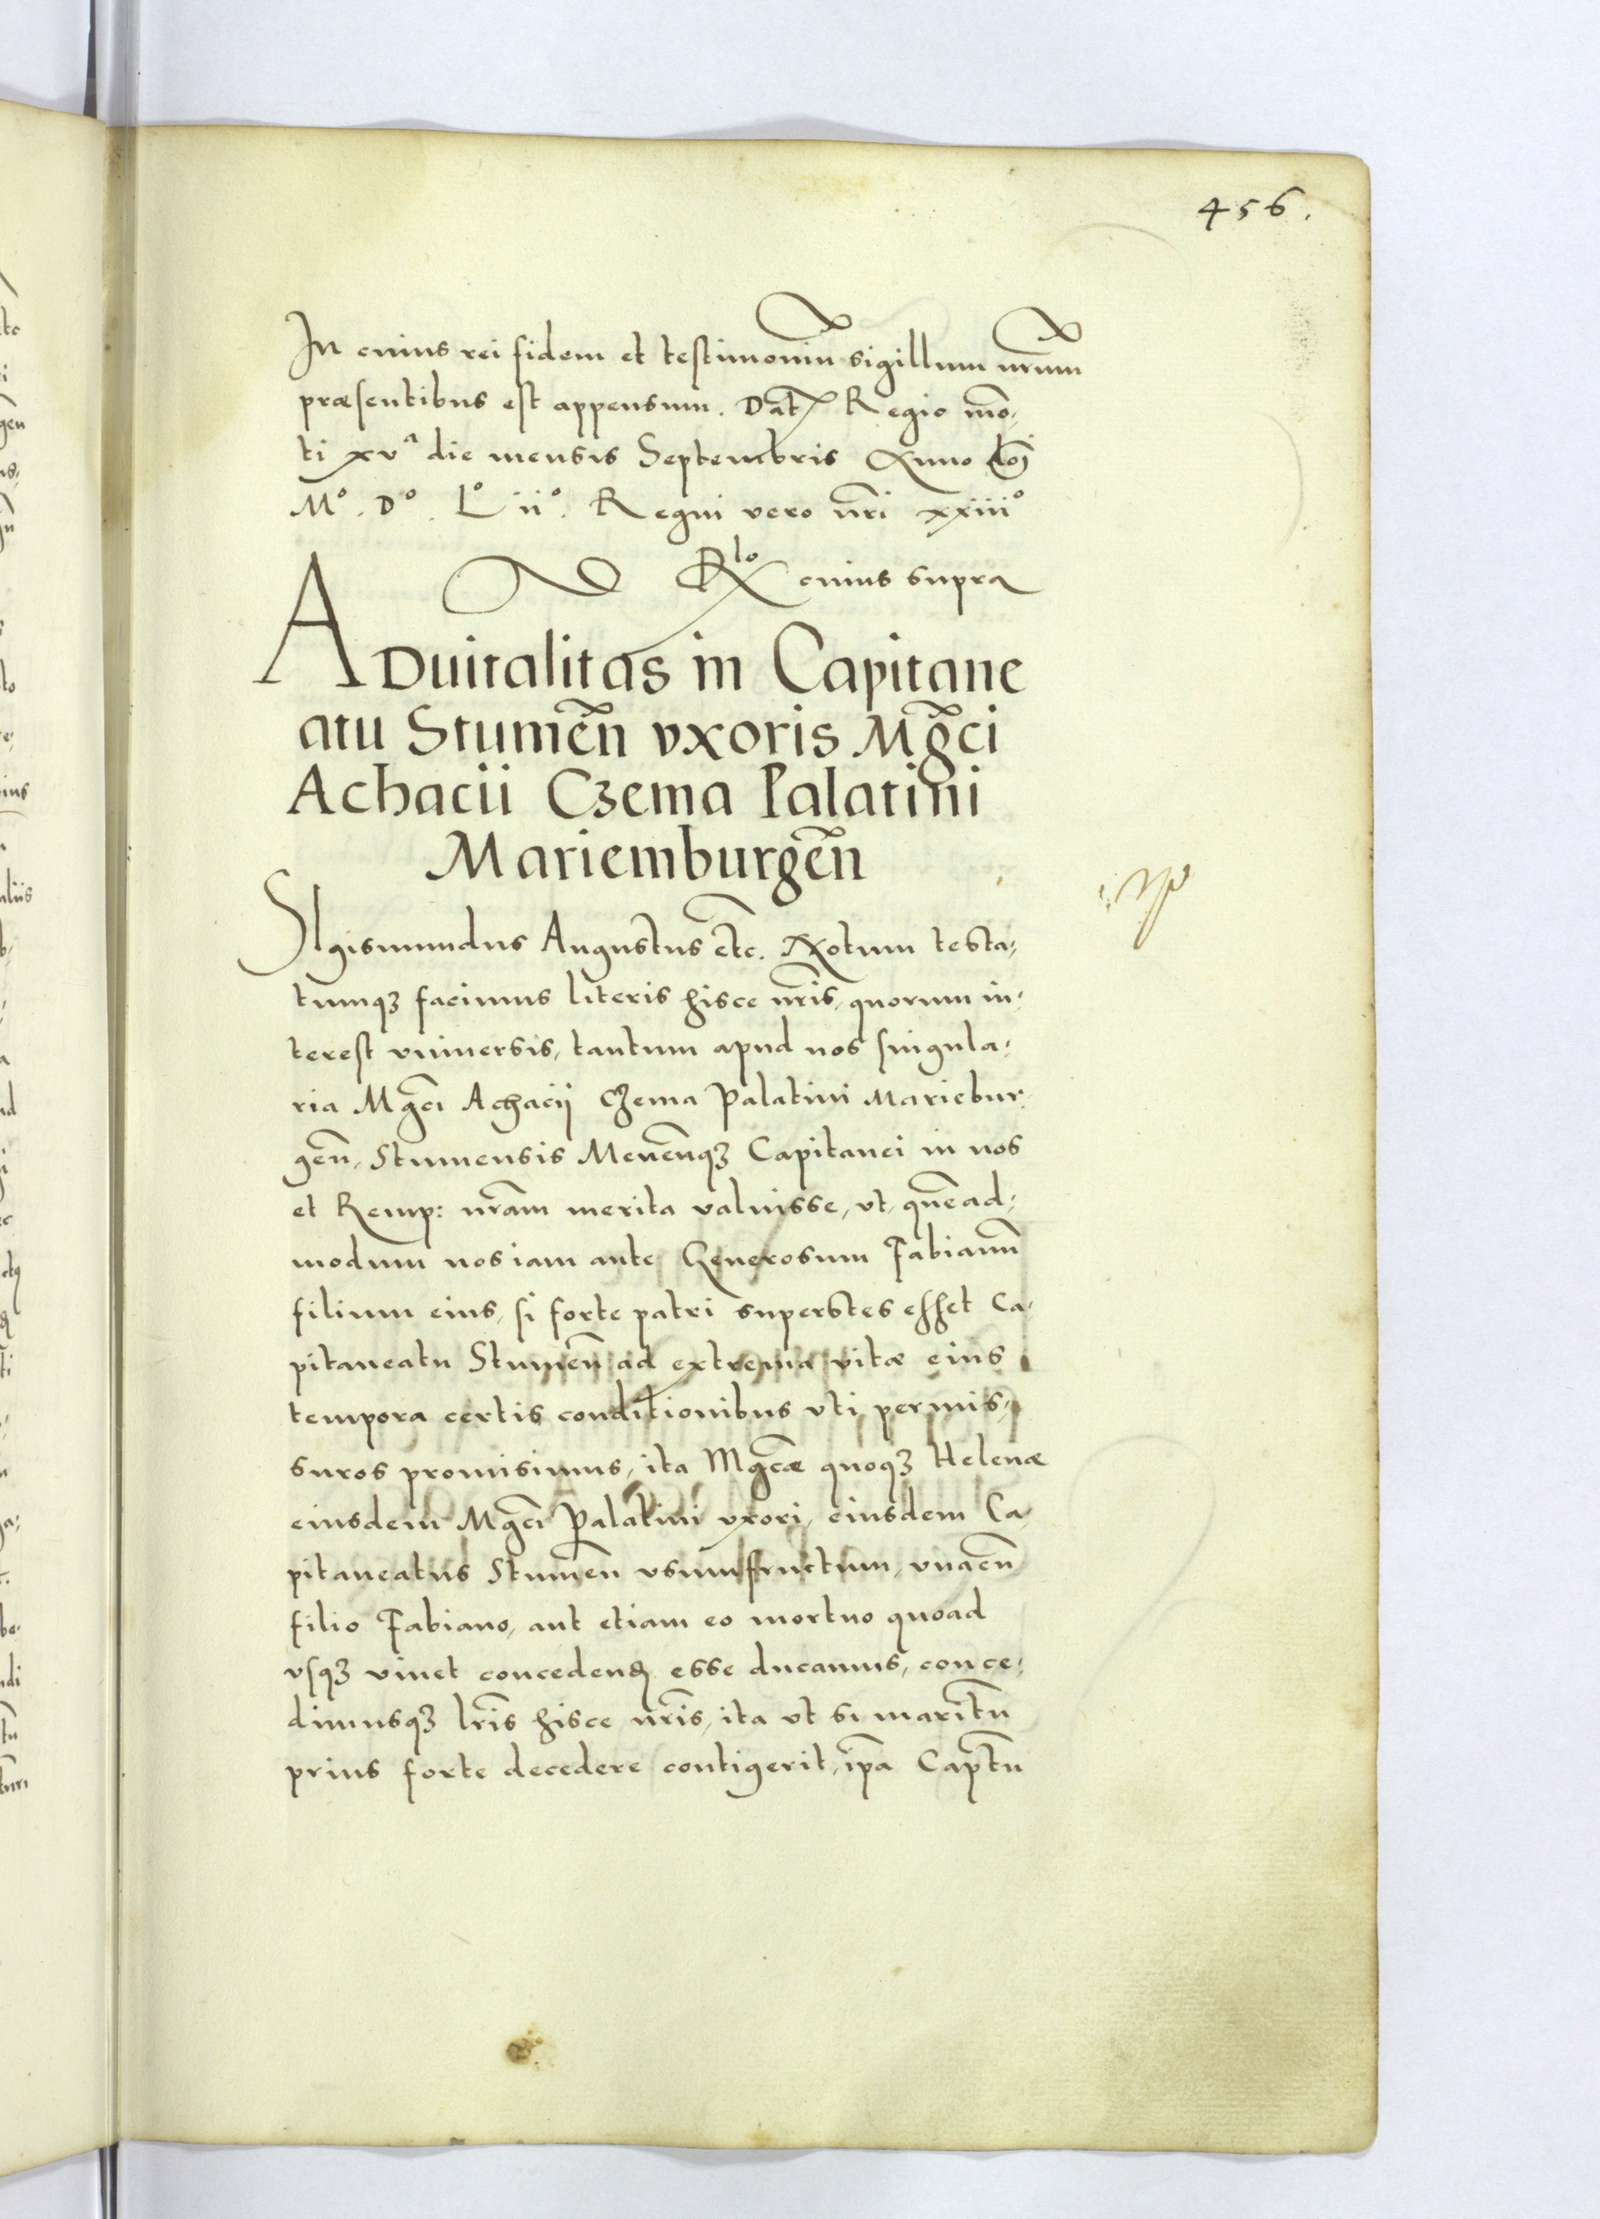 456.
In cuius rei fidem et testimoniũ sigillum nr̃um
præsentibus est appensum. Dat̃ Regio mõ-
ti xvª die mensis Septembris Anno dñi
Mº. Dº. Lº iiº. Regni vero nr̃i xxiiiº
Rlo cuius supra
ADvitalitas in Capitane
atu Stumeñ vxoris Mg̃ci
Achacii Czema Palatini
Mariemburgeñ
SIgismundus Augustus etc̃. Notum testa-
tumqꝫ facimus literis hisce nr̃is, quorum in-
terest vniuersis, tantum apud nos singula-
ria Mg̃ci Achacij Czema Palatini Mariebur-
geñ, Stumensis Meueñqꝫ Capitanei in nos
et Remp: nr̃am merita valuisse, vt, quẽad-
modum nos iam ante Generosum Fabianũ
filium eius, si forte patri superstes esset Ca-
pitaneatu Stumeñ ad extrema vitæ eius
tempora certis conditionibus vti permis-
suros promisimus, ita Mg̃cæ quoqꝫ Helenæ
eiusdem Mg̃ci Palatini vxori, eiusdem Ca-
pitaneatus Stumeñ vsumfructum, vnacũ
filio Fabiano, aut etiam eo mortuo quoad
vsqꝫ viuet concedendũ esse ducamus, conce-
dimusqꝫ lr̃is hisce nr̃is, ita vt si maritũ
prius forte decedere contigerit, ip̃a Cap̃tũ